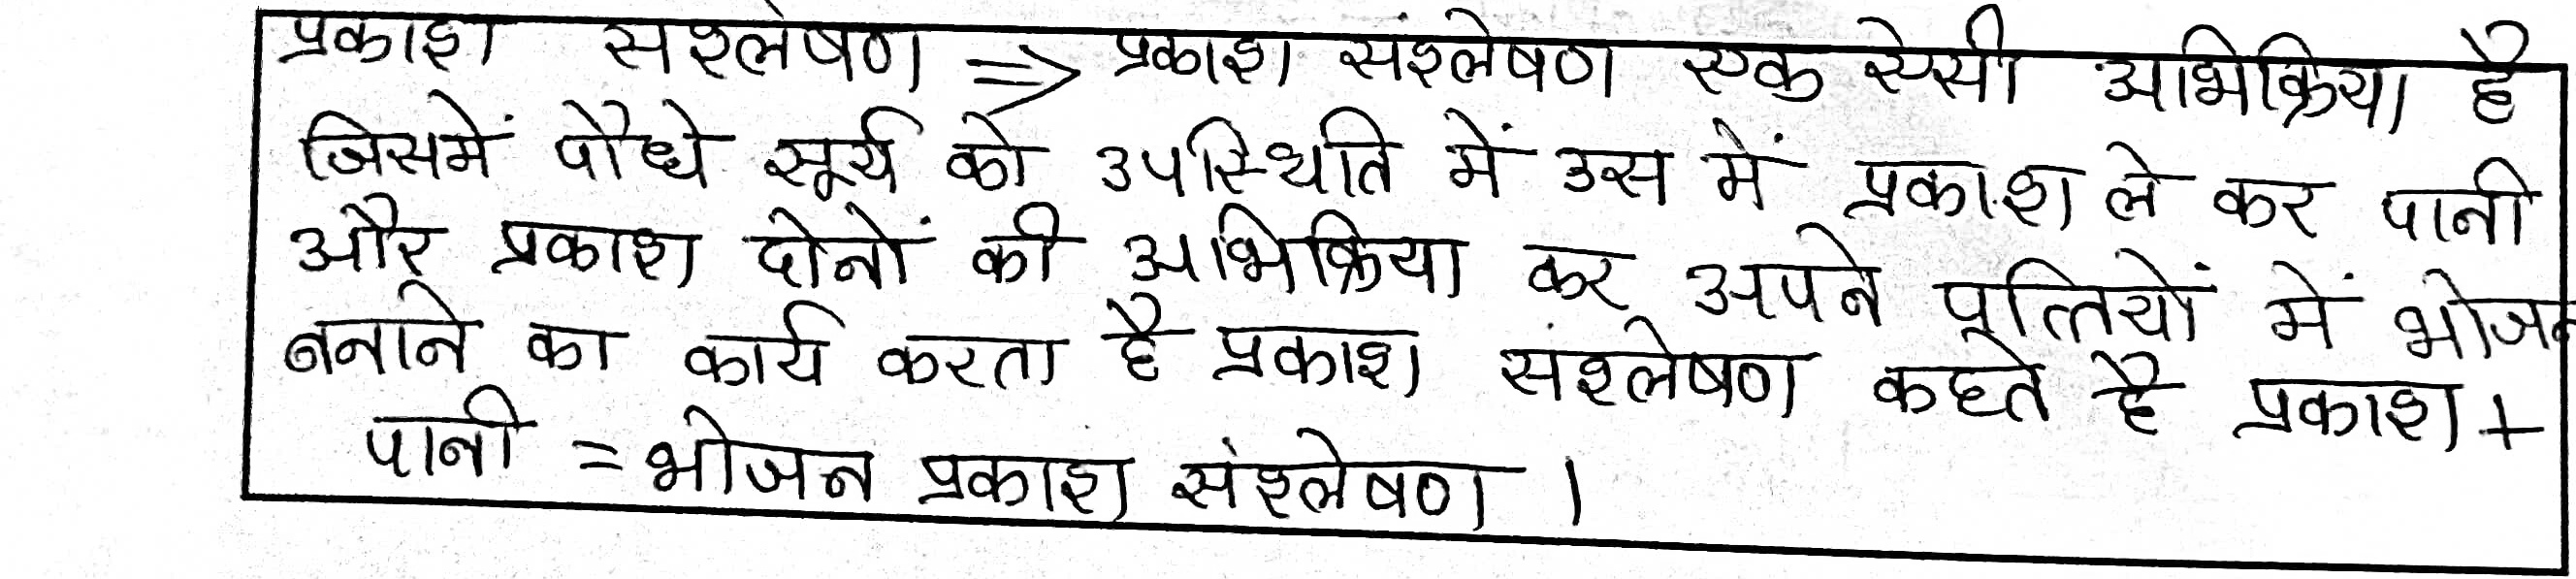 प्रकाश संश्लेषण => प्रकाश संश्लेषण एक ऐसी अभिक्रिया है
जिसमें पौधे सूर्य को उपस्थिति में उस में प्रकाश ले कर पानी
और प्रकाश दोनों की अभिक्रिया कर अपने पत्तियों में भोजन
बनाने का कार्य करता है प्रकाश संश्लेषण कहते है प्रकाश +
पानी = भोजन प्रकाश संश्लेषण ।